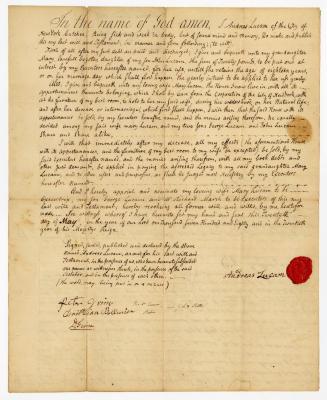 In the name of God amen, I Andreas Lucam of the City of
New York Butcher, Being sick and weak in body, but of sound mind and memory, Do make and publish
this my last will and Testament, in manner and form following; to wit.
First of all after my just debts are paid and discharged; I give and bequeath unto my grandaughter
Mary Campbell deputed daughter of my son the sum of Twenty pounds, to be put out at
interest by my Executors hereafter named, for her use, untill she attains the age of eighteen years,
or on her marriage day which shall first happen, the yearly interest to be applied to her use yearly.
Also I give and bequeath unto my loving wife Mary Lucam, the House I now live in with all its
appurtenances thereunto belonging, which I hold by lease from the Corporation of the City of New York, with
all the furniture of my front room, to hold to her my said wife, during her widowhood, or her Natural life
and after her decease, or intermarriage which shall first happen, I will then that the said House with its
appurtenances be sold, by my Executors hereafter named, and the monies arising therefrom, be equally
divided among my said wife Mary Lucam, and my two sons George Lucam, and John Lucam,
Share and Share alike.
I will that immediately after my decease, all my effects (the aforementioned House
with its appurtenances, and the furniture of my front room to my wife be excepted) be sold, by my
said Executors hereafter named, and the monies arising therefrom, with all my book debts and
other just demands, be applied in paying the aforesaid Legacy to my said grandaughter Mary
Lucam, and to other uses and purposes as shall be judged most needfry by my Executors
hereafter named.
And I hereby appoint and nominate my loving wife Mary Lucam to be
Executrix, and George Lucam and Michael March to be Executors of this my
last will and Testament, hereby revoking all former wills and wills, by me heretofore
made. In witness whereof I have hereunto set my hand and seal this Twentieth
day of May, in the year of our Lord one Thousand seven hundred and Eighty, and in the Twentieth
year of his Majestys Reign.
Signed, sealed, published and declared by the above
named Andreas Lucam, as and for his last will and
Testament, in the presence of us, who have hereunto subscribed
our names as witnesses thereto, in the presence of the said
testator and in the presence of each other.
(the word may, being put in on a rasure)
Andreas Lucam